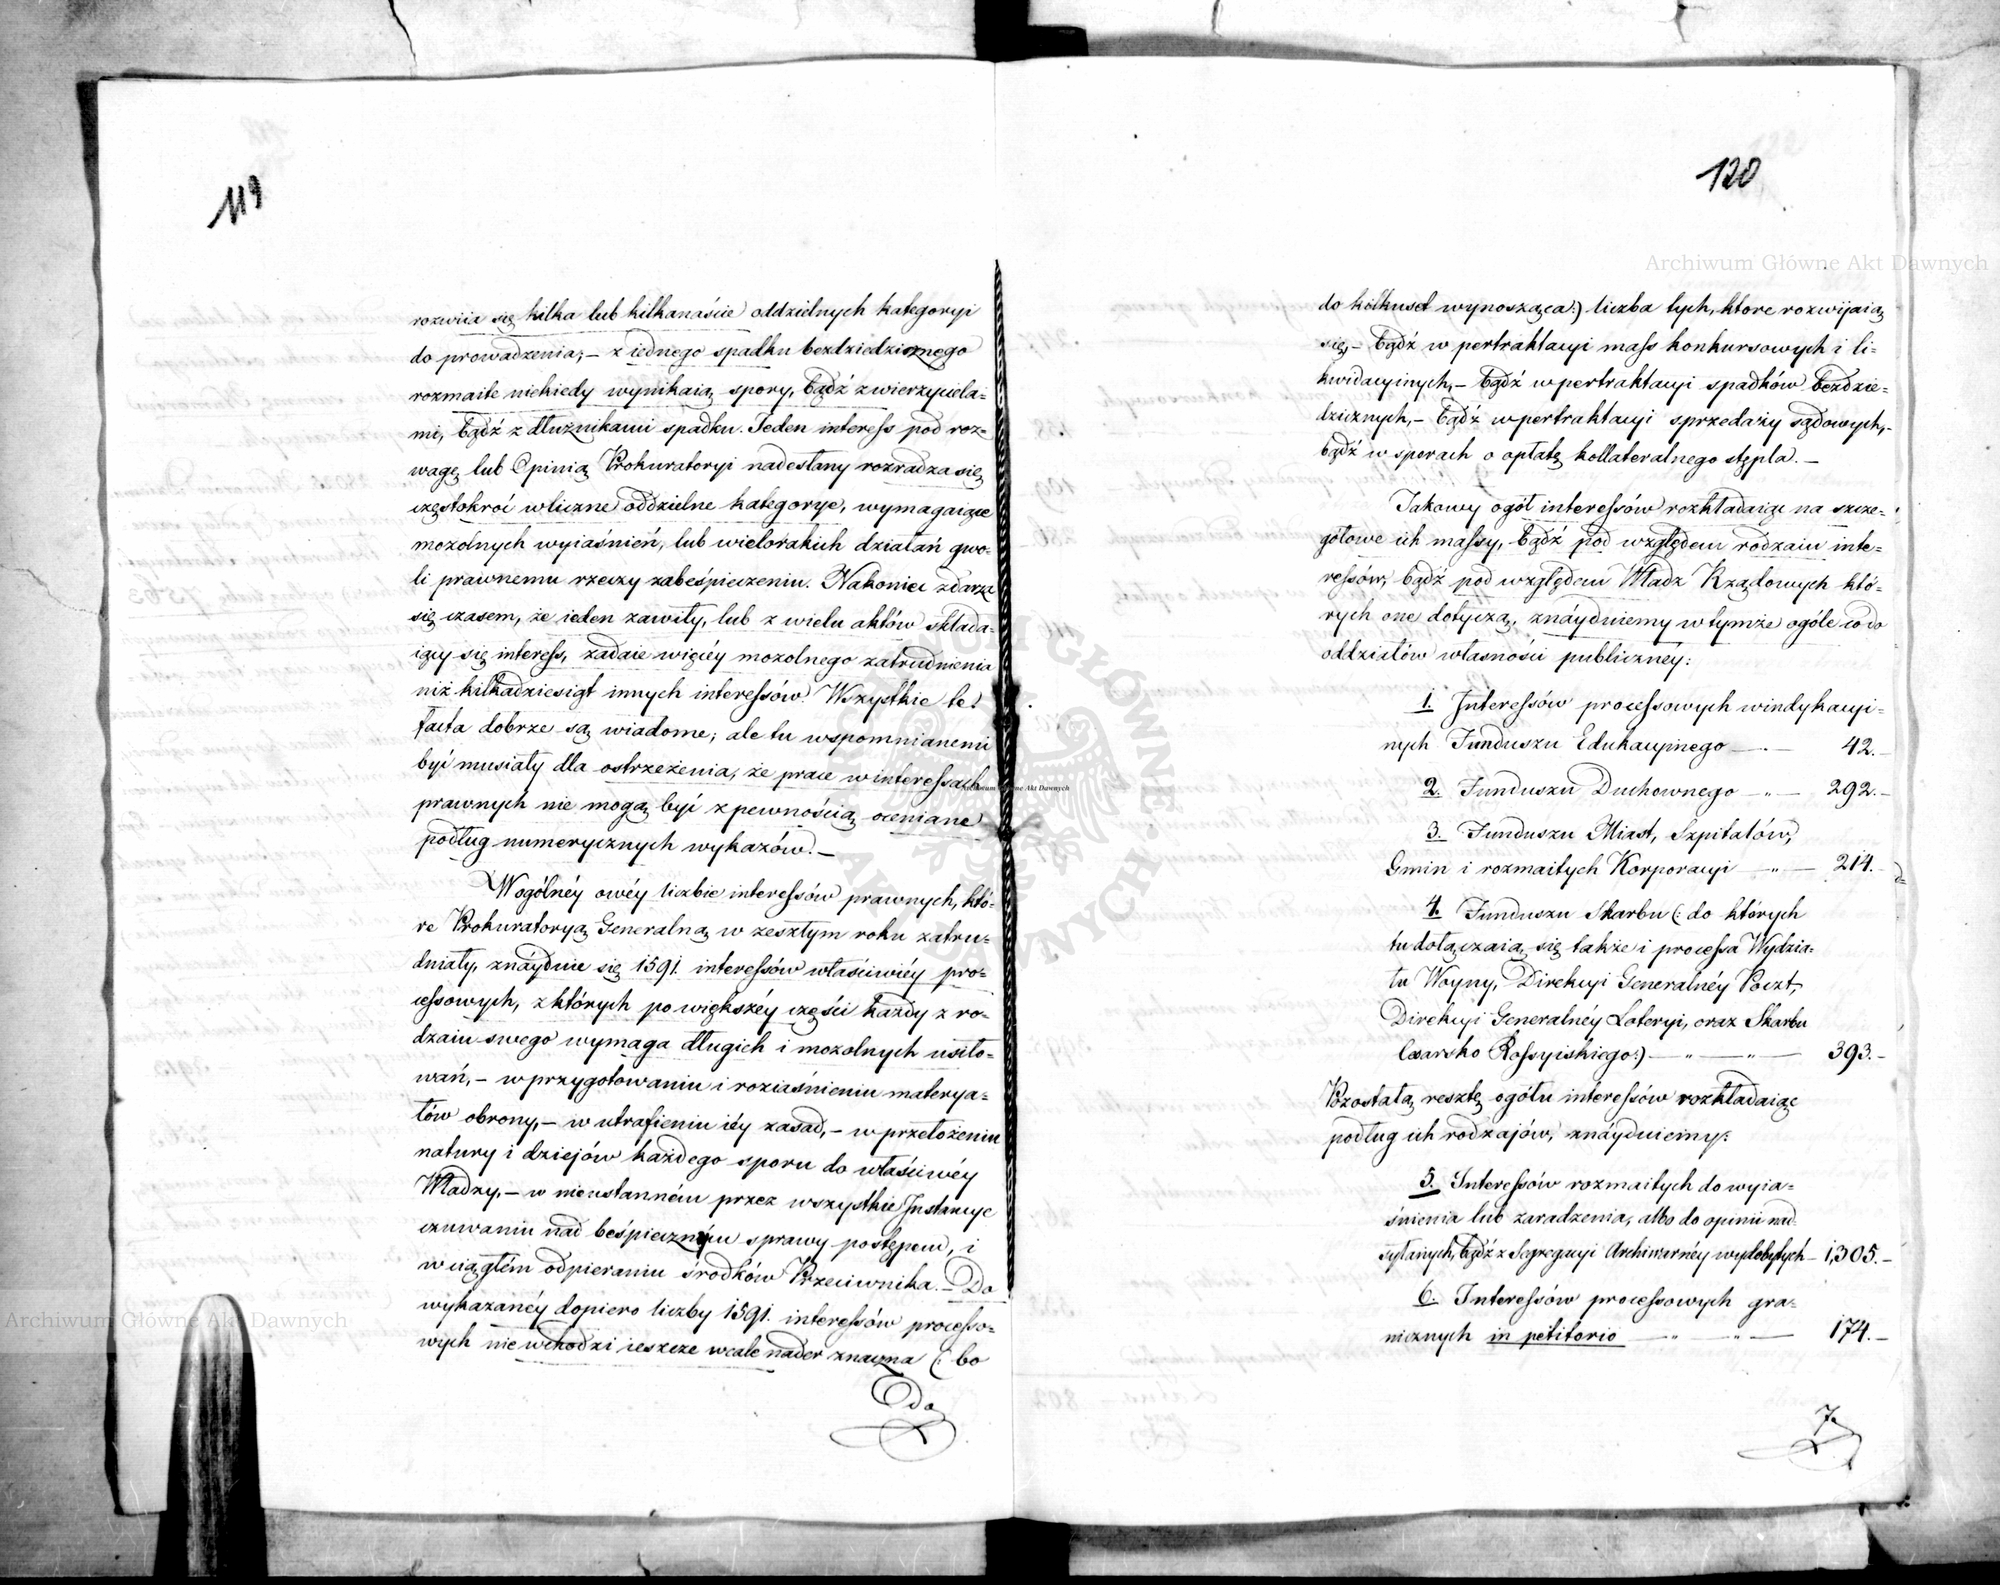 119
rozwiia się kilka lub kilkanaście oddzielnych kategoryi
do prowadzenia; – z iednego spadku bezdziedzicznego
rozmaite niekiedy wynikaią spory, bądź z wierzyciela-
mi, bądź z dłużnikami spadku. Jeden interess pod roz-
wagę lub Opinią Prokuratoryi nadesłany rozradza się
częstokroć w liczne oddzielne kategorye, wymagaiące
mozolnych wyiaśnień, lub wielorakich działań gwo-
li prawnemu rzeczy zabeśpieczeniu. Nakoniec zdarza
się czasem, że ieden zawiły, lub z wielu aktów składa-
iący się interess, zadaie więcéy mozolnego zatrudnienia
niż kilkadziesiąt innych interessów. Wszystkie te
facta dobrze są wiadome; ale tu wspomnianemi
być musiały dla ostrzeżenia, że prace w interessach
prawnych nie mogą być z pewnością oceniane
podług numerycznych wykazów. –
W ogólnéy owéy liczbie interessów prawnych, któ-
re Prokuratoryą Generalną w zeszłym roku zatru-
dniały, znáydzie się 1591. interessów właściwiéy pro-
cessowych, z których po większéy części każdy z ro-
dzaiu swego wymaga długich i mozolnych usiło-
wań, – w przygotowaniu i roziaśnieniu materya-
łów obrony, – w utrafieniu iéy zasad, – w przełożeniu
natury i dziejów każdego sporu do właściwéy
Władzy, – w nieustanném przez wszystkie Instancye
czuwaniu nad beśpiecznym sprawy postępem, i
w ciągłém odpieraniu środków Przeciwnika. – Do
wykazanéy dopiero liczby 1591. interessów processo-
wych nie wchodzi ieszcze wcale nader znaczna (: bo
do
120
do kilkuset wynosząca:) liczba tych, ktore rozwijaią
się, – bądź w pertraktacyi mass konkursowych i li-
kwidacyinych, – bądź w pertraktacyi spadków bezdzie-
dzicznych, – bądź w pertraktacyi sprzedaży sądowych, –
bądź w sporach o opłatę kollateralnego stępla. –
Jakowy ogół interessów rozkładaiąc na szcze-
gółowe ich massy, bądź pod względem rodzaiu inte-
ressów, bądź pod względem Władz Rządowych któ-
rych one dotyczą, znáydziemy w tymże ogóle co do
oddziałów własności publicznéy:
1. Interessów processowych windykacyi-
nych Funduszu Edukacyinego – „ – 42. –
2. Funduszu Duchownego – „ – 292. –
3. Funduszu Miast, Szpitalów,
Gmin i rozmaitych Korporacyi – „ – 214. –
4. Funduszu Skarbu (: do których
tu dołączaią się także i processa Wydzia-
łu Woyny, Direkcyi Generalnéy Poczt,
Direkcyi Generalnéy Loteryi, oraz Skarbu
Cesarsko Rossyiskiego:) – „ – „ – 393. –
Pozostałą resztę ogółu interessów rozkładaiąc
podług ich rodzajów, znáydziemy:
5. Interessów rozmaitych do wyia-
śnienia lub zaradzenia, albo do opinii nad-
syłanych, bądź z Segregacyi Archiwarnéy wydobytych – 1,305. –
6. Interessów processowych gra-
nicznych in petitorio – „ – „ – 174. –
7.
Archiwum Główne Akt Dawnych
Archiwum Główne Akt Dawnych
Archiwum Główne Akt Dawnych
ARCHIWUM GŁÓWNE AKT DAWNYCH